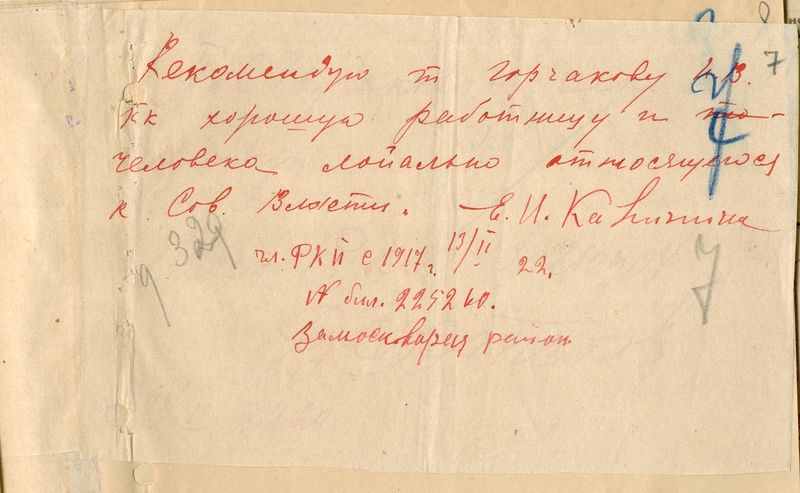 8
7
Рекомендую т Горчакову А.В.
кк хорошую работницу и
человека лойально относящегося
к Сов. Власти. Е. И. Калинина
чл. РКП с 1917 г. 13/II 22.
N бил. 225260.
Замоскворец район
329